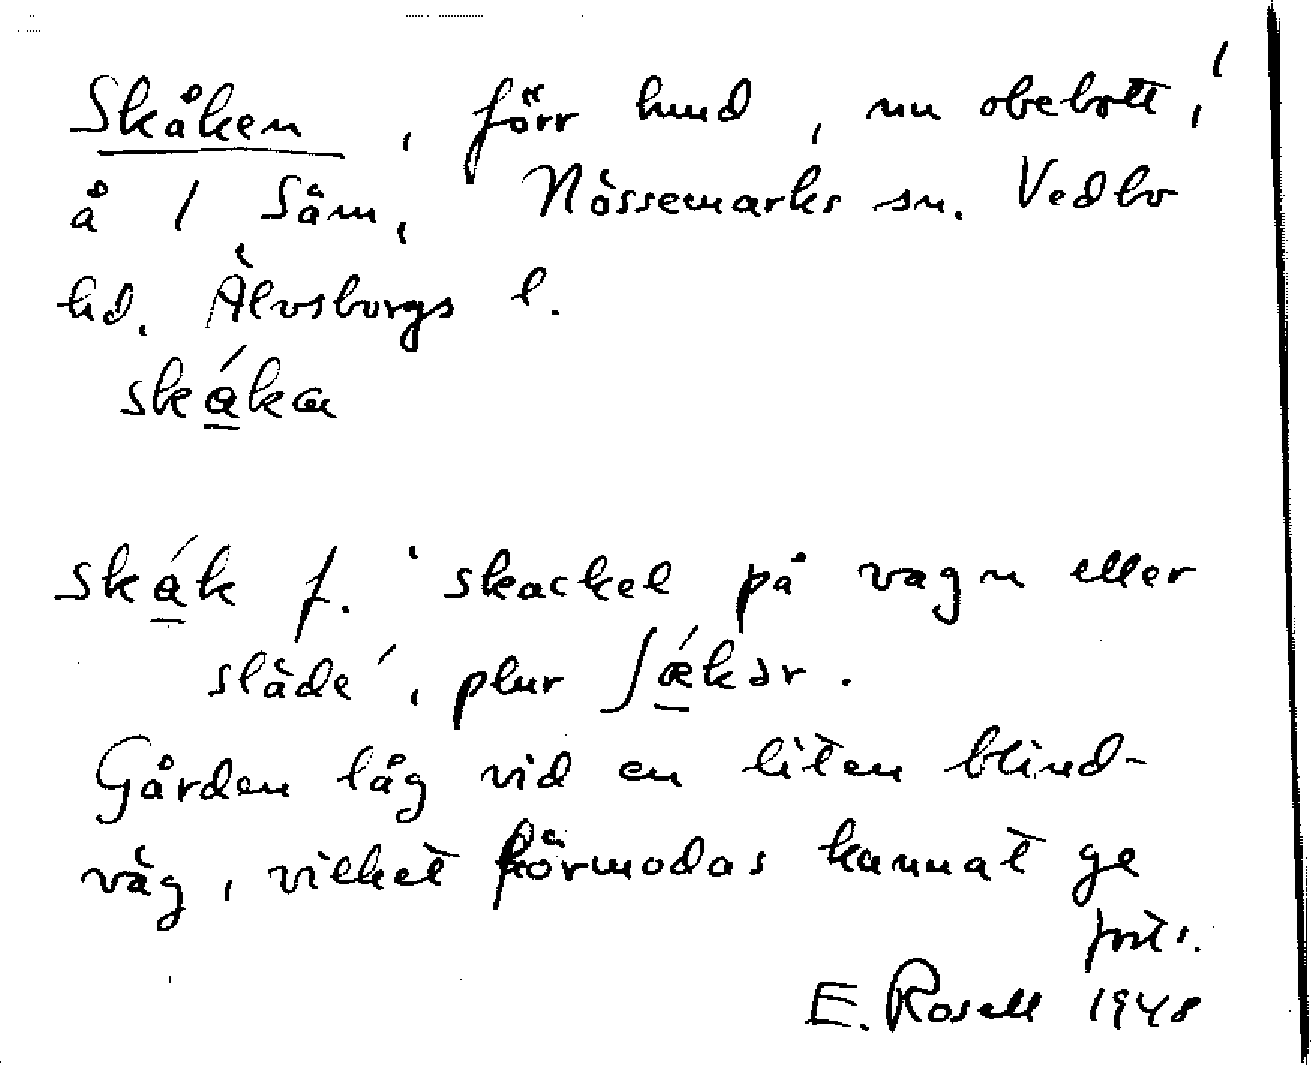 Skåken, förr hmd, nu obebott,
å 1 Säm, Nössemarks sn. Vedbo
hd. Älvsborgs l.
skáka
skák f. 'skackel på vagn eller
släde', plur ʃǽkər.
Gården låg vid en liten blind-
väg, vilket förmodas kunnat ge
forts.
E. Rosell 1948